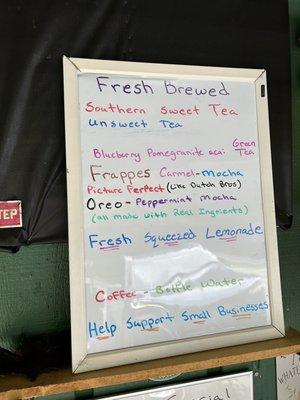 Fresh Brewed
Southern sweet Tea
unsweet Tea
Blueberry Pomegranate acai Green Tea
Frappes Carmel-Mocha
Picture Perfect (Like Dutch Bros)
Oreo - Peppermint Mocha
(all made with Real Ingrients)
Fresh Squeezed Lemonade
Coffee - Bottle Water
Help Support Small Businesses
TEP
WHAT
Special